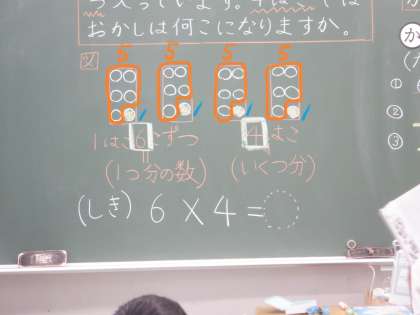 入っています。4はこでは
おかしは何こになりますか。
図
5 5 5 5
1はこ6こずつ 4はこ
(1つ分の数) (いくつ分)
(しき) 6×4=
か
①
②
③